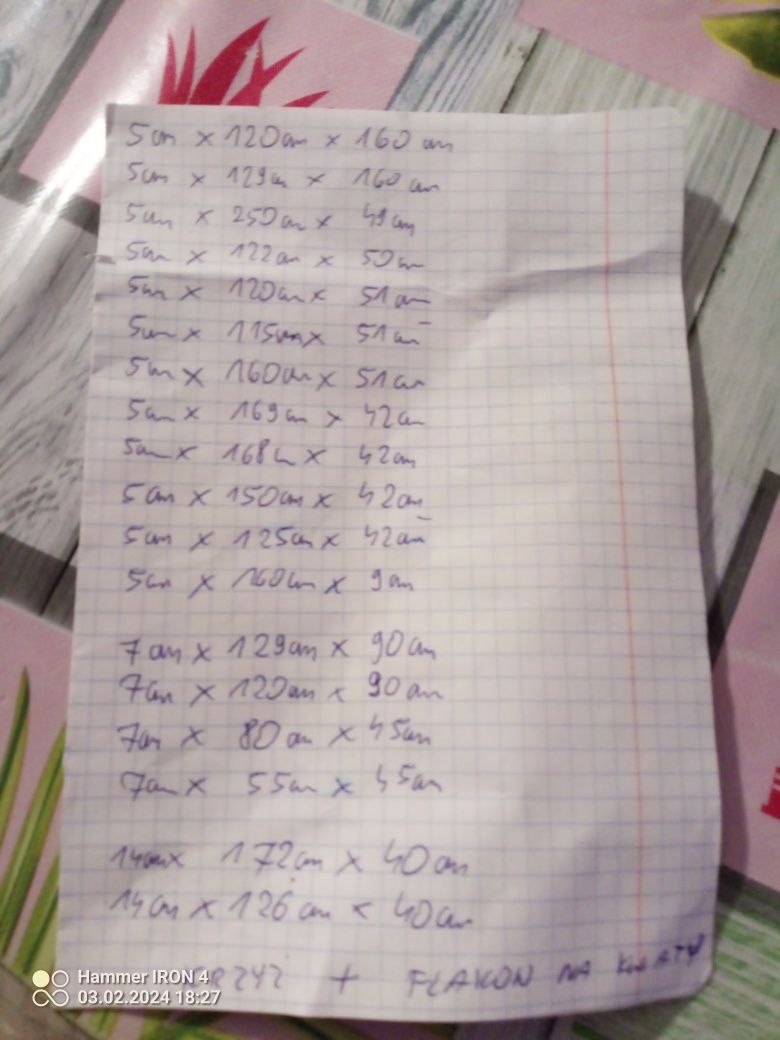 5cm x 120cm x 160 cm
5cm x 129cm x 160 cm
5cm x 250cm x 49cm
5cm x 122cm x 50cm
5cm x 120cm x 51cm
5cm x 115cm x 51cm
5cm x 160cm x 51cm
5cm x 169cm x 42cm
5cm x 168cm x 42cm
5cm x 150cm x 42cm
5cm x 125cm x 42cm
5cm x 160cm x 9cm
7cm x 129cm x 90cm
7cm x 120cm x 90cm
7cm x 80cm x 45cm
7cm x 55cm x 45cm
14cm x 172cm x 40cm
14cm x 126cm x 40cm
+ FLAKON NA KWIATY
Hammer IRON 4
03.02.2024 18:27